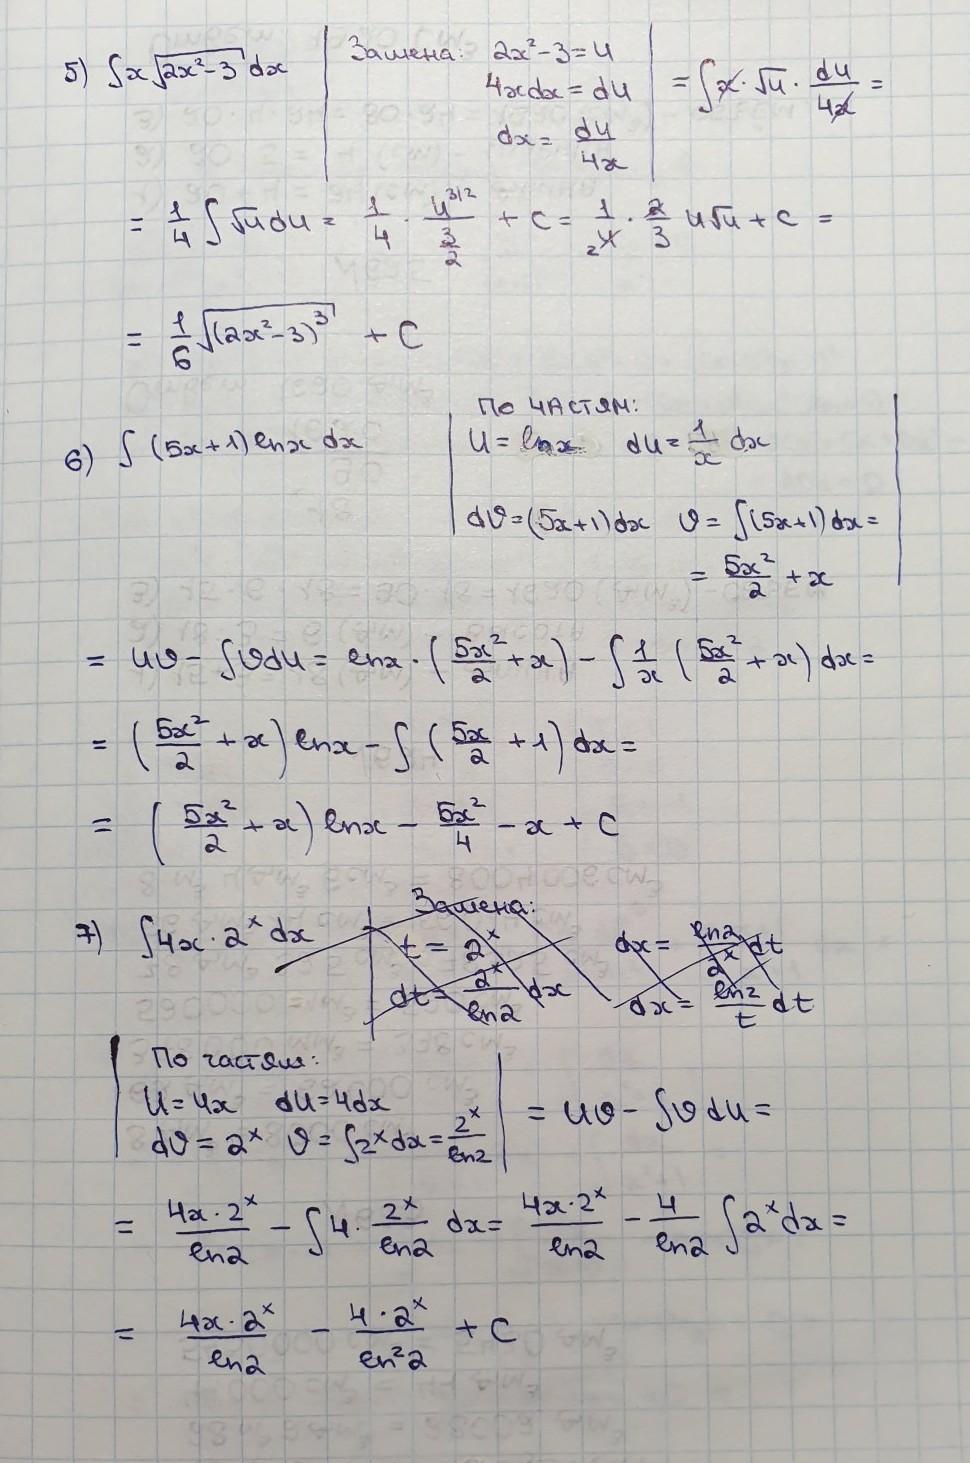 5) ∫x√(2x²-3) dx | Замена: 2x²-3=u
4xdx=du
dx = du/4x | = ∫x·√u · du/4x =
= 1/4 ∫√u du = 1/4 · u^(3/2)/(3/2) + c = 1/4 · 2/3 u√u + c =
= 1/6 √((2x²-3)³) + C
6) ∫(5x+1)lnx dx | По частям:
u = lnx du = 1/x dx
dv=(5x+1)dx v = ∫(5x+1)dx =
= 5x²/2 + x
= uv - ∫vdu = lnx · (5x²/2 + x) - ∫ 1/x (5x²/2 + x) dx =
= (5x²/2 + x) lnx - ∫ (5x/2 + 1) dx =
= (5x²/2 + x) lnx - 5x²/4 - x + C
7) ∫4x·2ˣ dx | Замена:
t = 2ˣ dx = ln2/2ˣ dt
dt = 2ˣ/ln2 dx dx = ln2/t dt
По частям:
u=4x du=4dx
dv = 2ˣ v = ∫2ˣdx = 2ˣ/ln2 | = uv - ∫v du =
= 4x·2ˣ/ln2 - ∫4 · 2ˣ/ln2 dx = 4x·2ˣ/ln2 - 4/ln2 ∫2ˣdx =
= 4x·2ˣ/ln2 - 4·2ˣ/ln²2 + C